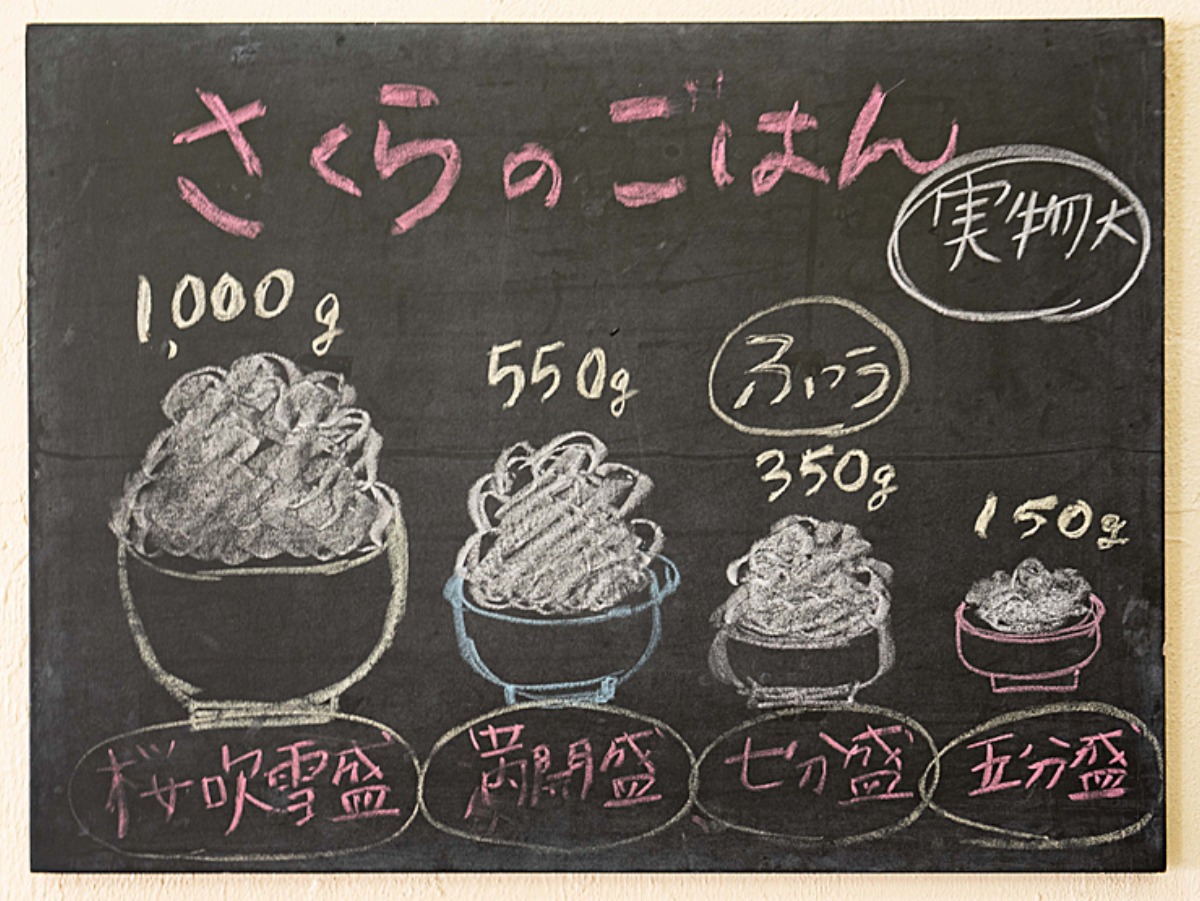 さくらのごはん
実物大
1,000g
550g
ふつう
350g
150g
桜吹雪盛
満開盛
七分盛
五分盛